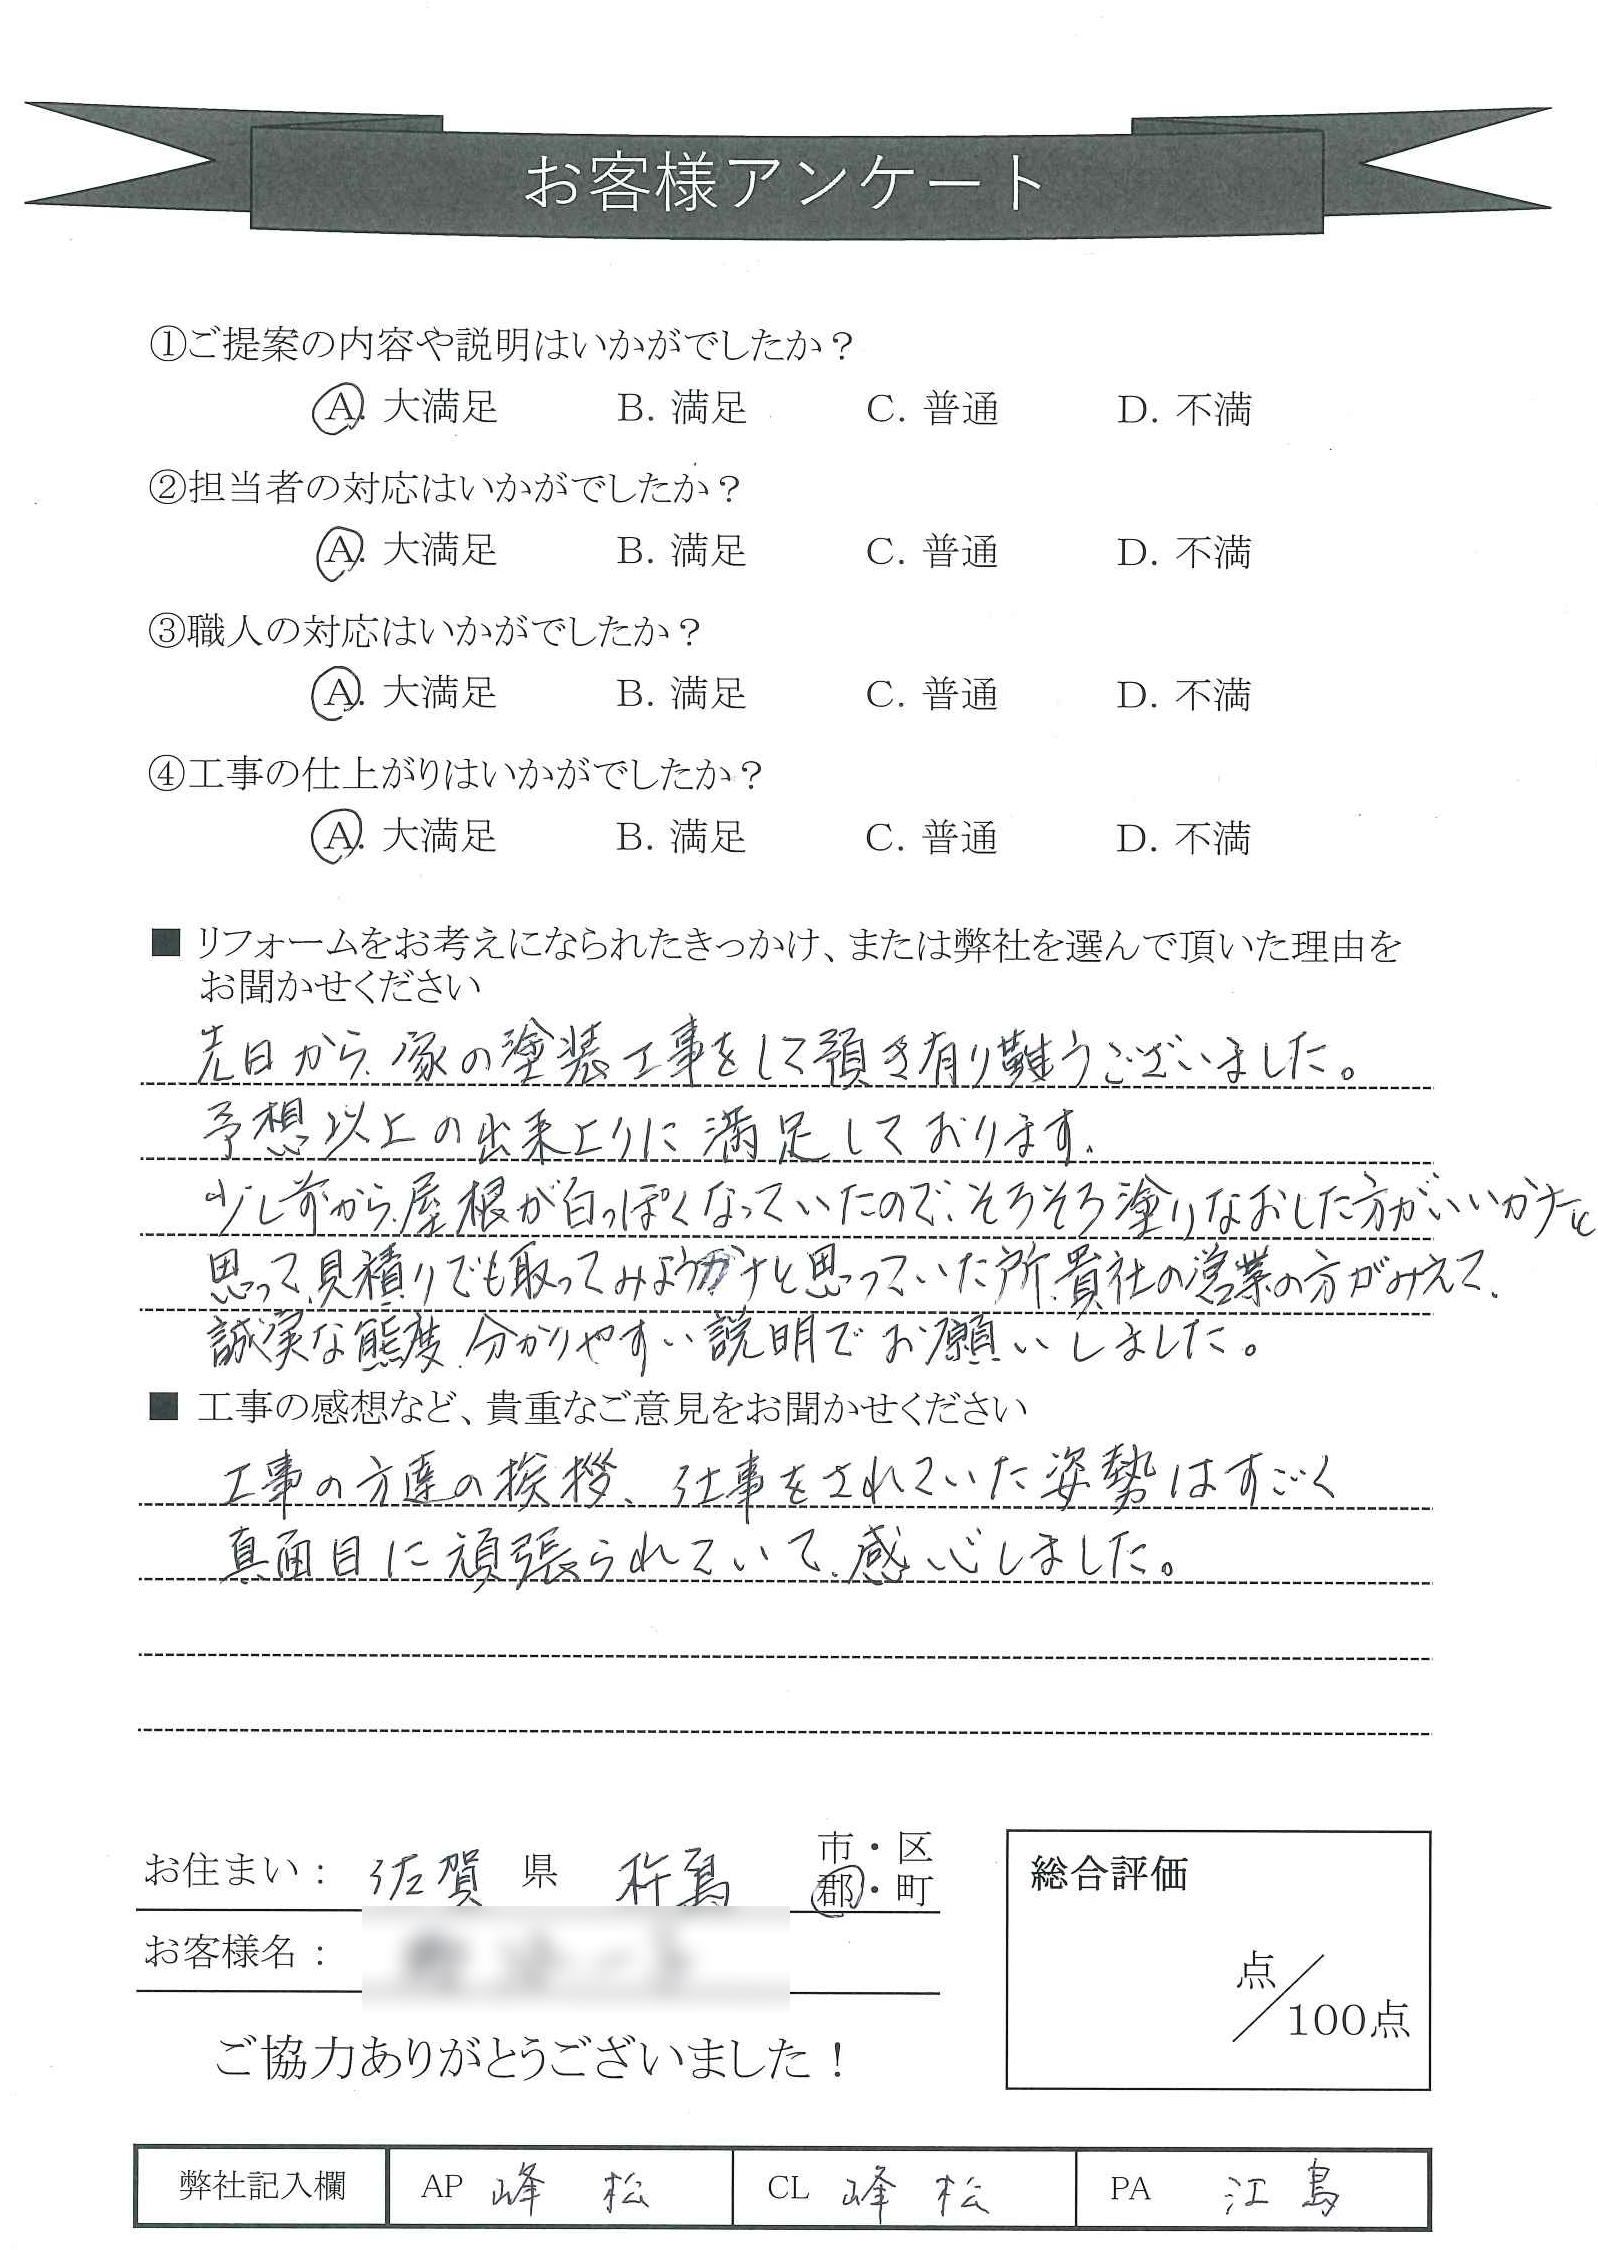 お客様アンケート
①ご提案の内容や説明はいかがでしたか？
A. 大満足 B. 満足 C. 普通 D. 不満
②担当者の対応はいかがでしたか？
A. 大満足 B. 満足 C. 普通 D. 不満
③職人の対応はいかがでしたか？
A. 大満足 B. 満足 C. 普通 D. 不満
④工事の仕上がりはいかがでしたか？
A. 大満足 B. 満足 C. 普通 D. 不満
■ リフォームをお考えになられたきっかけ、または弊社を選んで頂いた理由を
お聞かせください
先日から、家の塗装工事をして頂き有り難うございました。
予想以上の出来上りに満足しております。
少し前から、屋根が白っぽくなっていたので、そろそろ塗りなおした方がいいかナと
思って、見積りでも取ってみようかナと思っていた所、貴社の営業の方がみえて、
誠実な態度、分かりやすい説明でお願いしました。
■ 工事の感想など、貴重なご意見をお聞かせください
工事の方達の挨拶、仕事をされていた姿勢はすごく
真面目に頑張られていて、感心しました。
お住まい： 佐賀 県 杵島 市・区
郡・町
お客様名：
ご協力ありがとうございました！
総合評価
点／100点
弊社記入欄 AP 峰松 CL 峰松 PA 江島